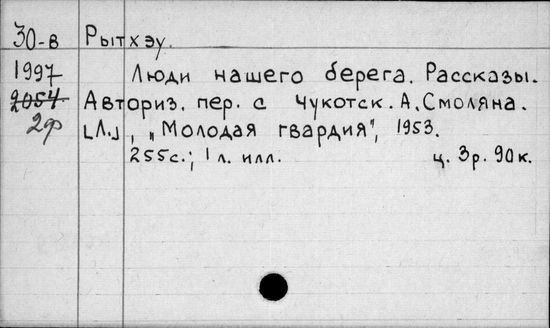 30-в Рытхэу.
1997 Люди нашего берега. Рассказы.
2054 Авториз. пер. с чукотск. А. Смоляна.
2ф [Л.], „Молодая гвардия", 1953.
255с.; 1 л. илл. ц. 3р. 90к.